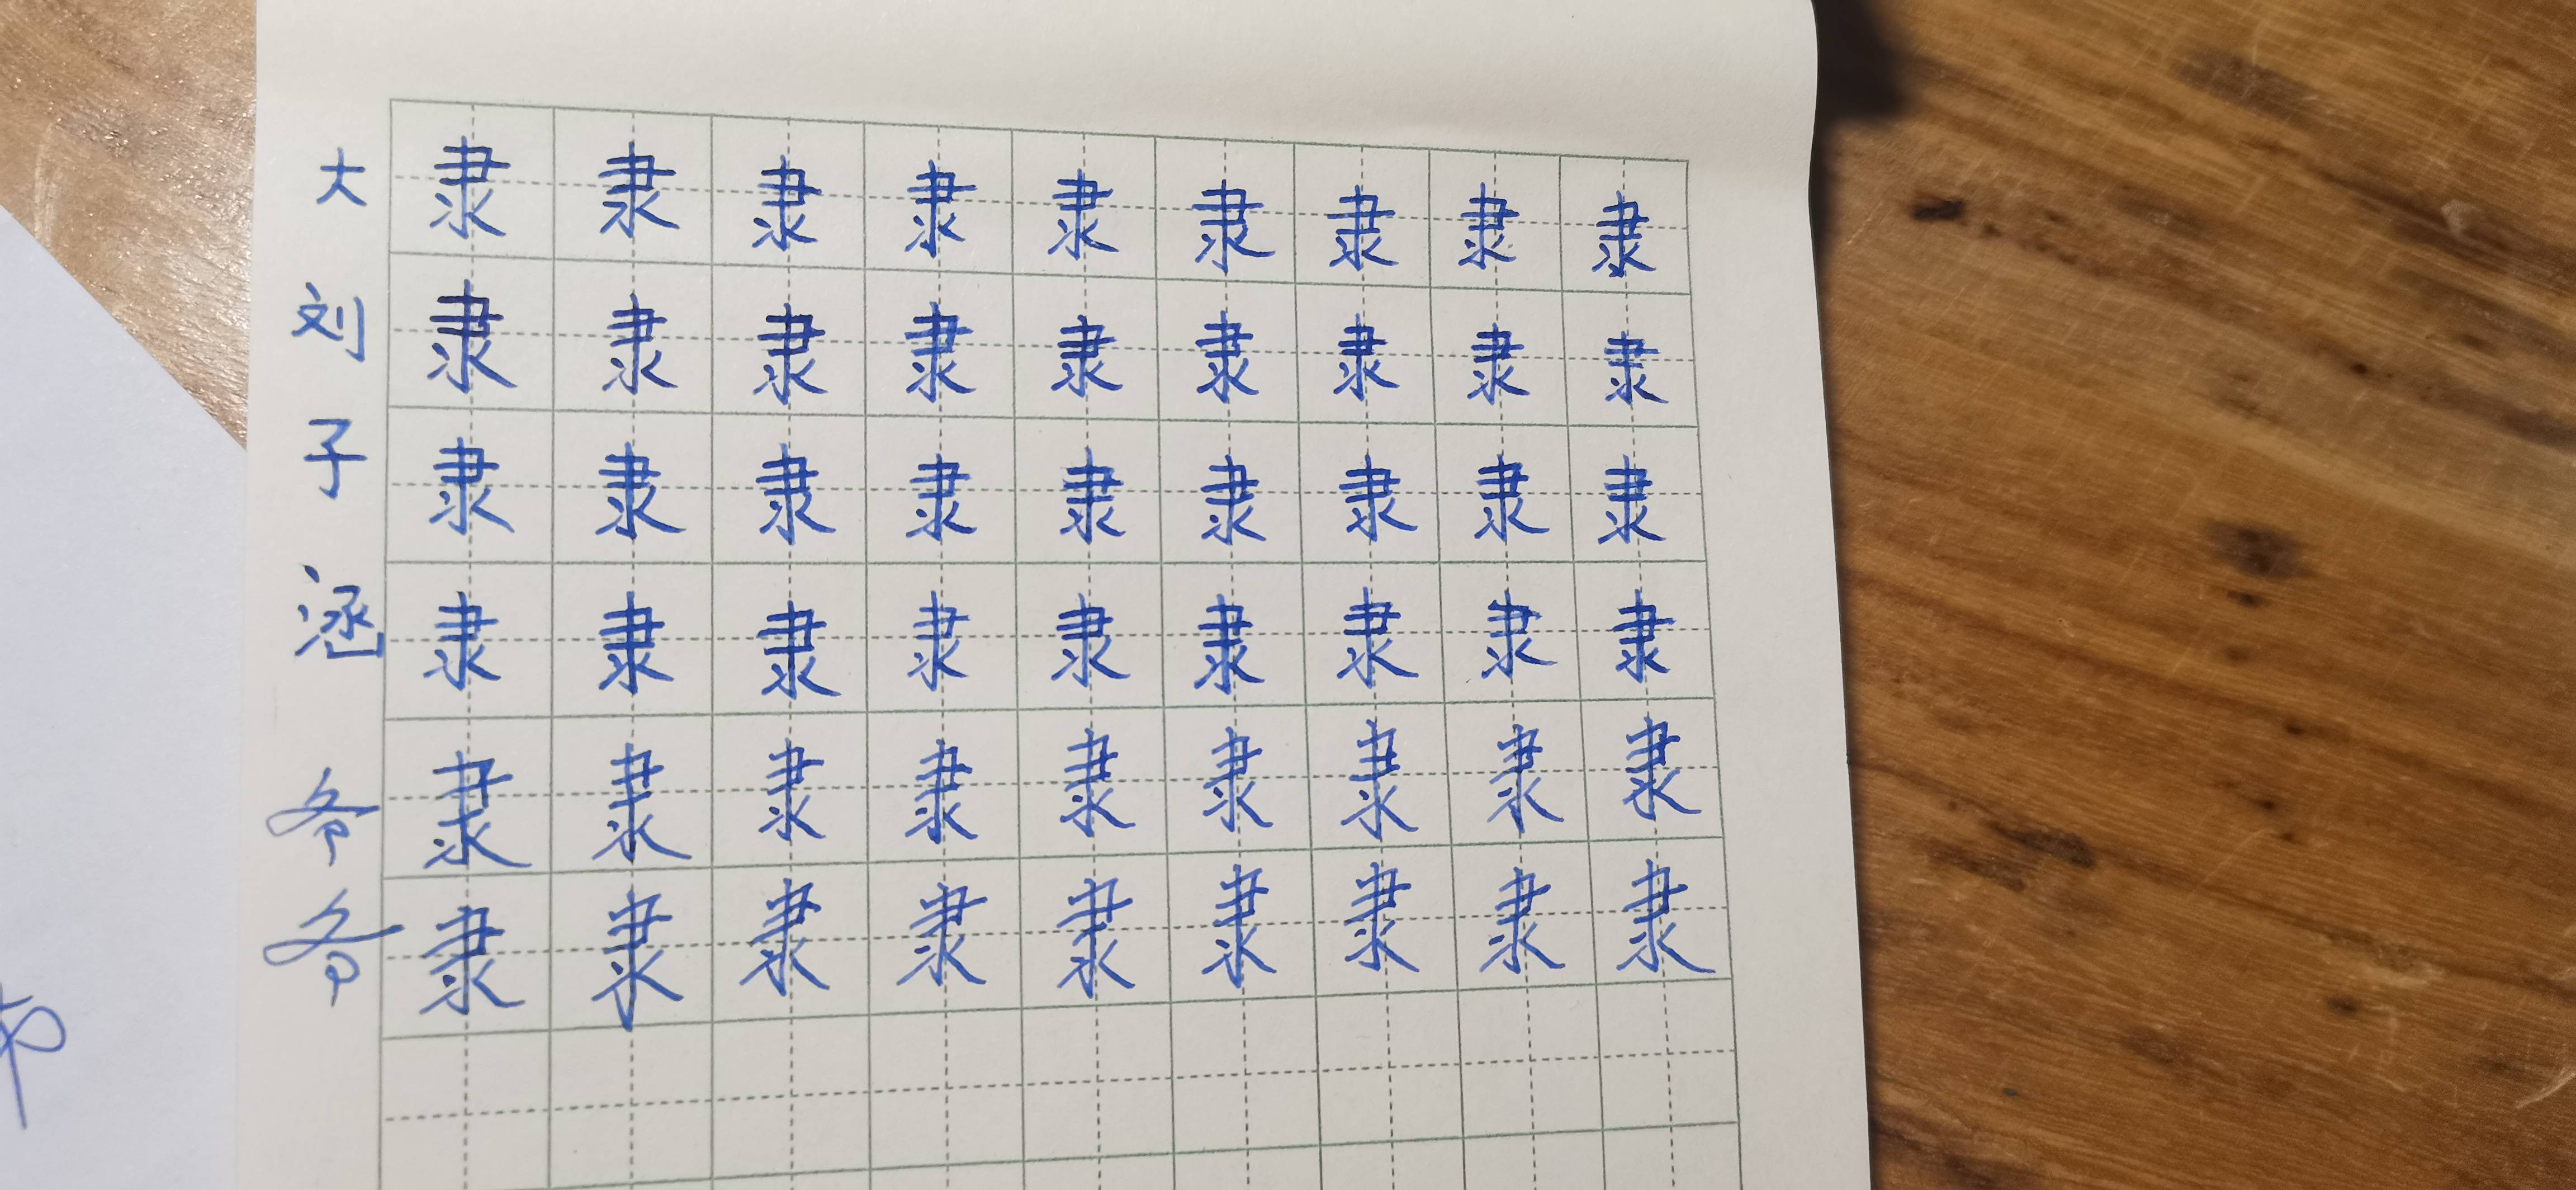 大刘子涵爷爷
隶隶隶隶隶隶隶隶隶
隶隶隶隶隶隶隶隶隶
隶隶隶隶隶隶隶隶隶
隶隶隶隶隶隶隶隶隶
隶隶隶隶隶隶隶隶隶
隶隶隶隶隶隶隶隶隶